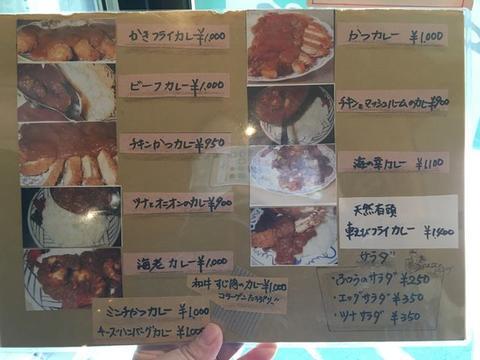 かきフライカレー ¥1,000
ビーフカレー ¥1,000
チキンかつカレー ¥950
ツナとオニオンのカレー ¥900
海老カレー ¥1,000
和牛すじ肉のカレー ¥1,000
コラーゲンたっぷり!!
ミンチかつカレー ¥1,000
チーズハンバーグカレー ¥1,000
かつカレー ¥1,000
チキンとマッシュルームのカレー ¥900
海の幸カレー ¥1,100
天然有頭
車えびフライカレー ¥1,400
サラダ
・ふつうのサラダ ¥250
・エッグサラダ ¥350
・ツナサラダ ¥350